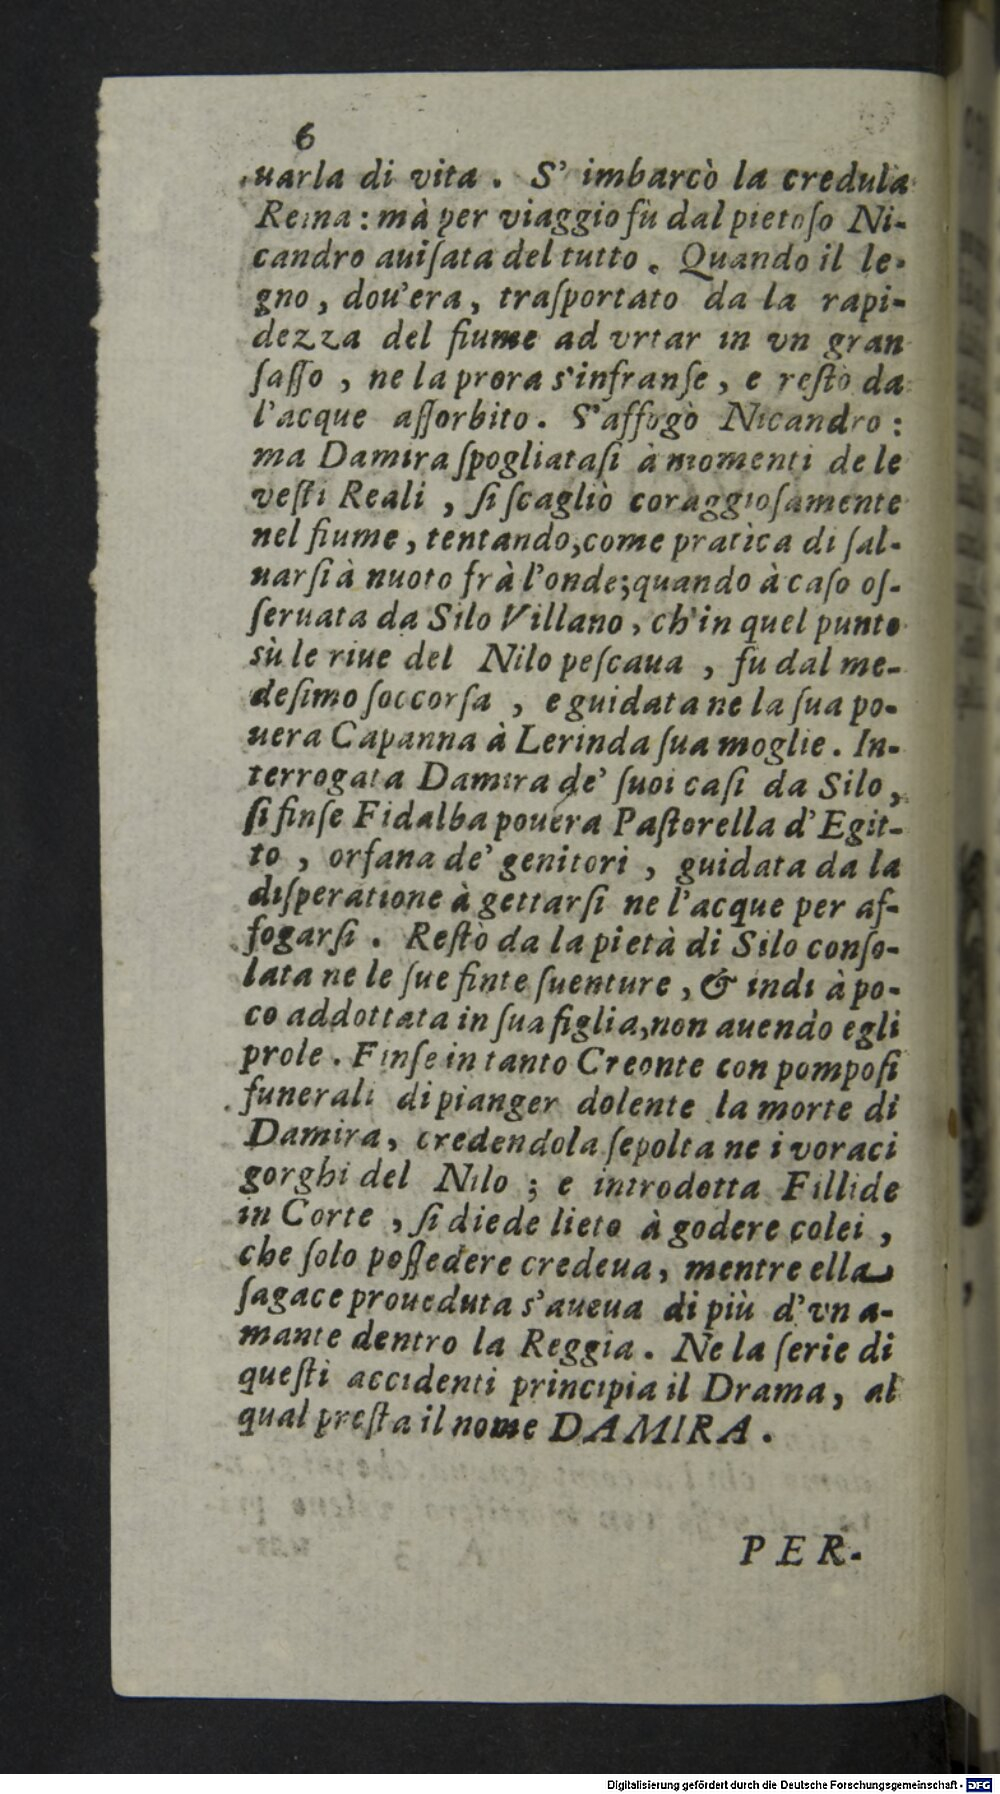 6
uarla di vita . S' imbarcò la credula
Reina : mà per viaggio fù dal pietoſo Ni-
candro auiſata del tutto . Quando il le-
gno , dou'era , traſportato da la rapi-
dezza del fiume ad vrtar in vn gran
ſaſſo , ne la prora s'infranſe , e reſtò da
l'acque aſſorbito . S'affogò Nicandro :
ma Damira ſpogliataſi à momenti de le
veſti Reali , ſi ſcagliò coraggioſamente
nel fiume , tentando,come pratica di ſal-
uarſi à nuoto frà l'onde;quando à caſo oſ-
ſeruata da Silo Villano , ch'in quel punto
sù le riue del Nilo peſcaua , fu dal me-
deſimo ſoccorſa , e guidata ne la ſua po-
uera Capanna à Lerinda ſua moglie . In-
terrogata Damira de' ſuoi caſi da Silo ,
ſi finſe Fidalba pouera Paſtorella d'Egit-
to , orfana de' genitori , guidata da la
diſperatione à gettarſi ne l'acque per af-
fogarſi . Reſtò da la pietà di Silo conſo-
lata ne le ſue finte ſuenture , & indi à po-
co addottata in ſua figlia,non auendo egli
prole . Finſe in tanto Creonte con pompoſi
funerali di pianger dolente la morte di
Damira , credendola ſepolta ne i voraci
gorghi del Nilo ; e introdotta Fillide
in Corte , ſi diede lieto à godere colei ,
che ſolo poſſedere credeua , mentre ella
ſagace proueduta s'aueua di più d'vn a-
mante dentro la Reggia . Ne la ſerie di
queſti accidenti principia il Drama , al
qual preſta il nome DAMIRA .
PER-
Digitalisierung gefördert durch die Deutsche Forschungsgemeinschaft - DFG